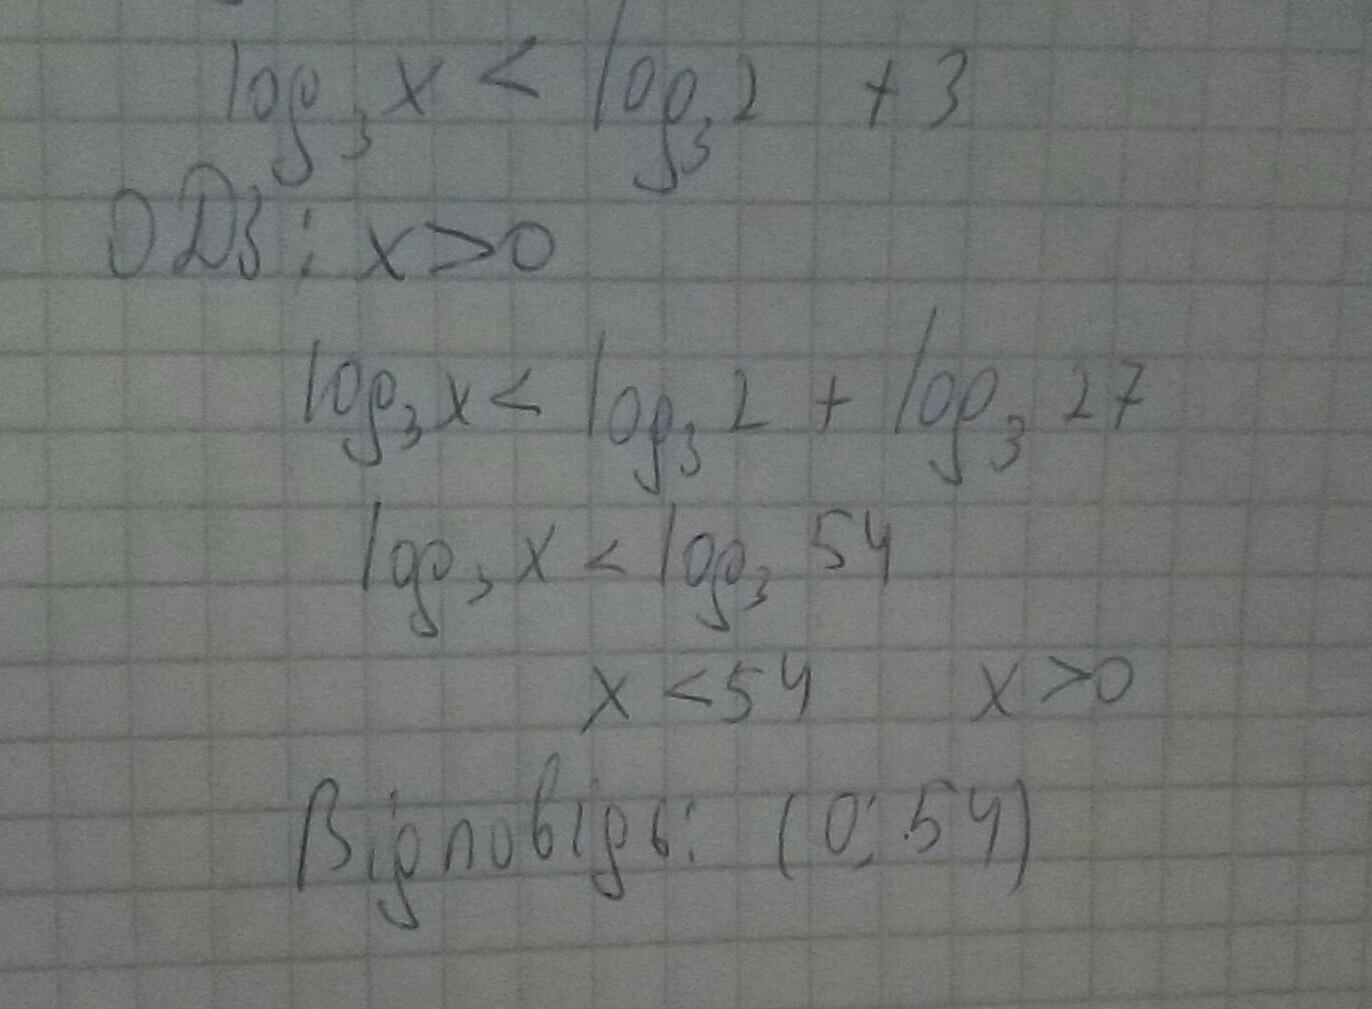 log₃x < log₃2 + 3
ОДЗ: x>0
log₃x < log₃2 + log₃27
log₃x < log₃54
x < 54 x>0
Відповідь: (0; 54)